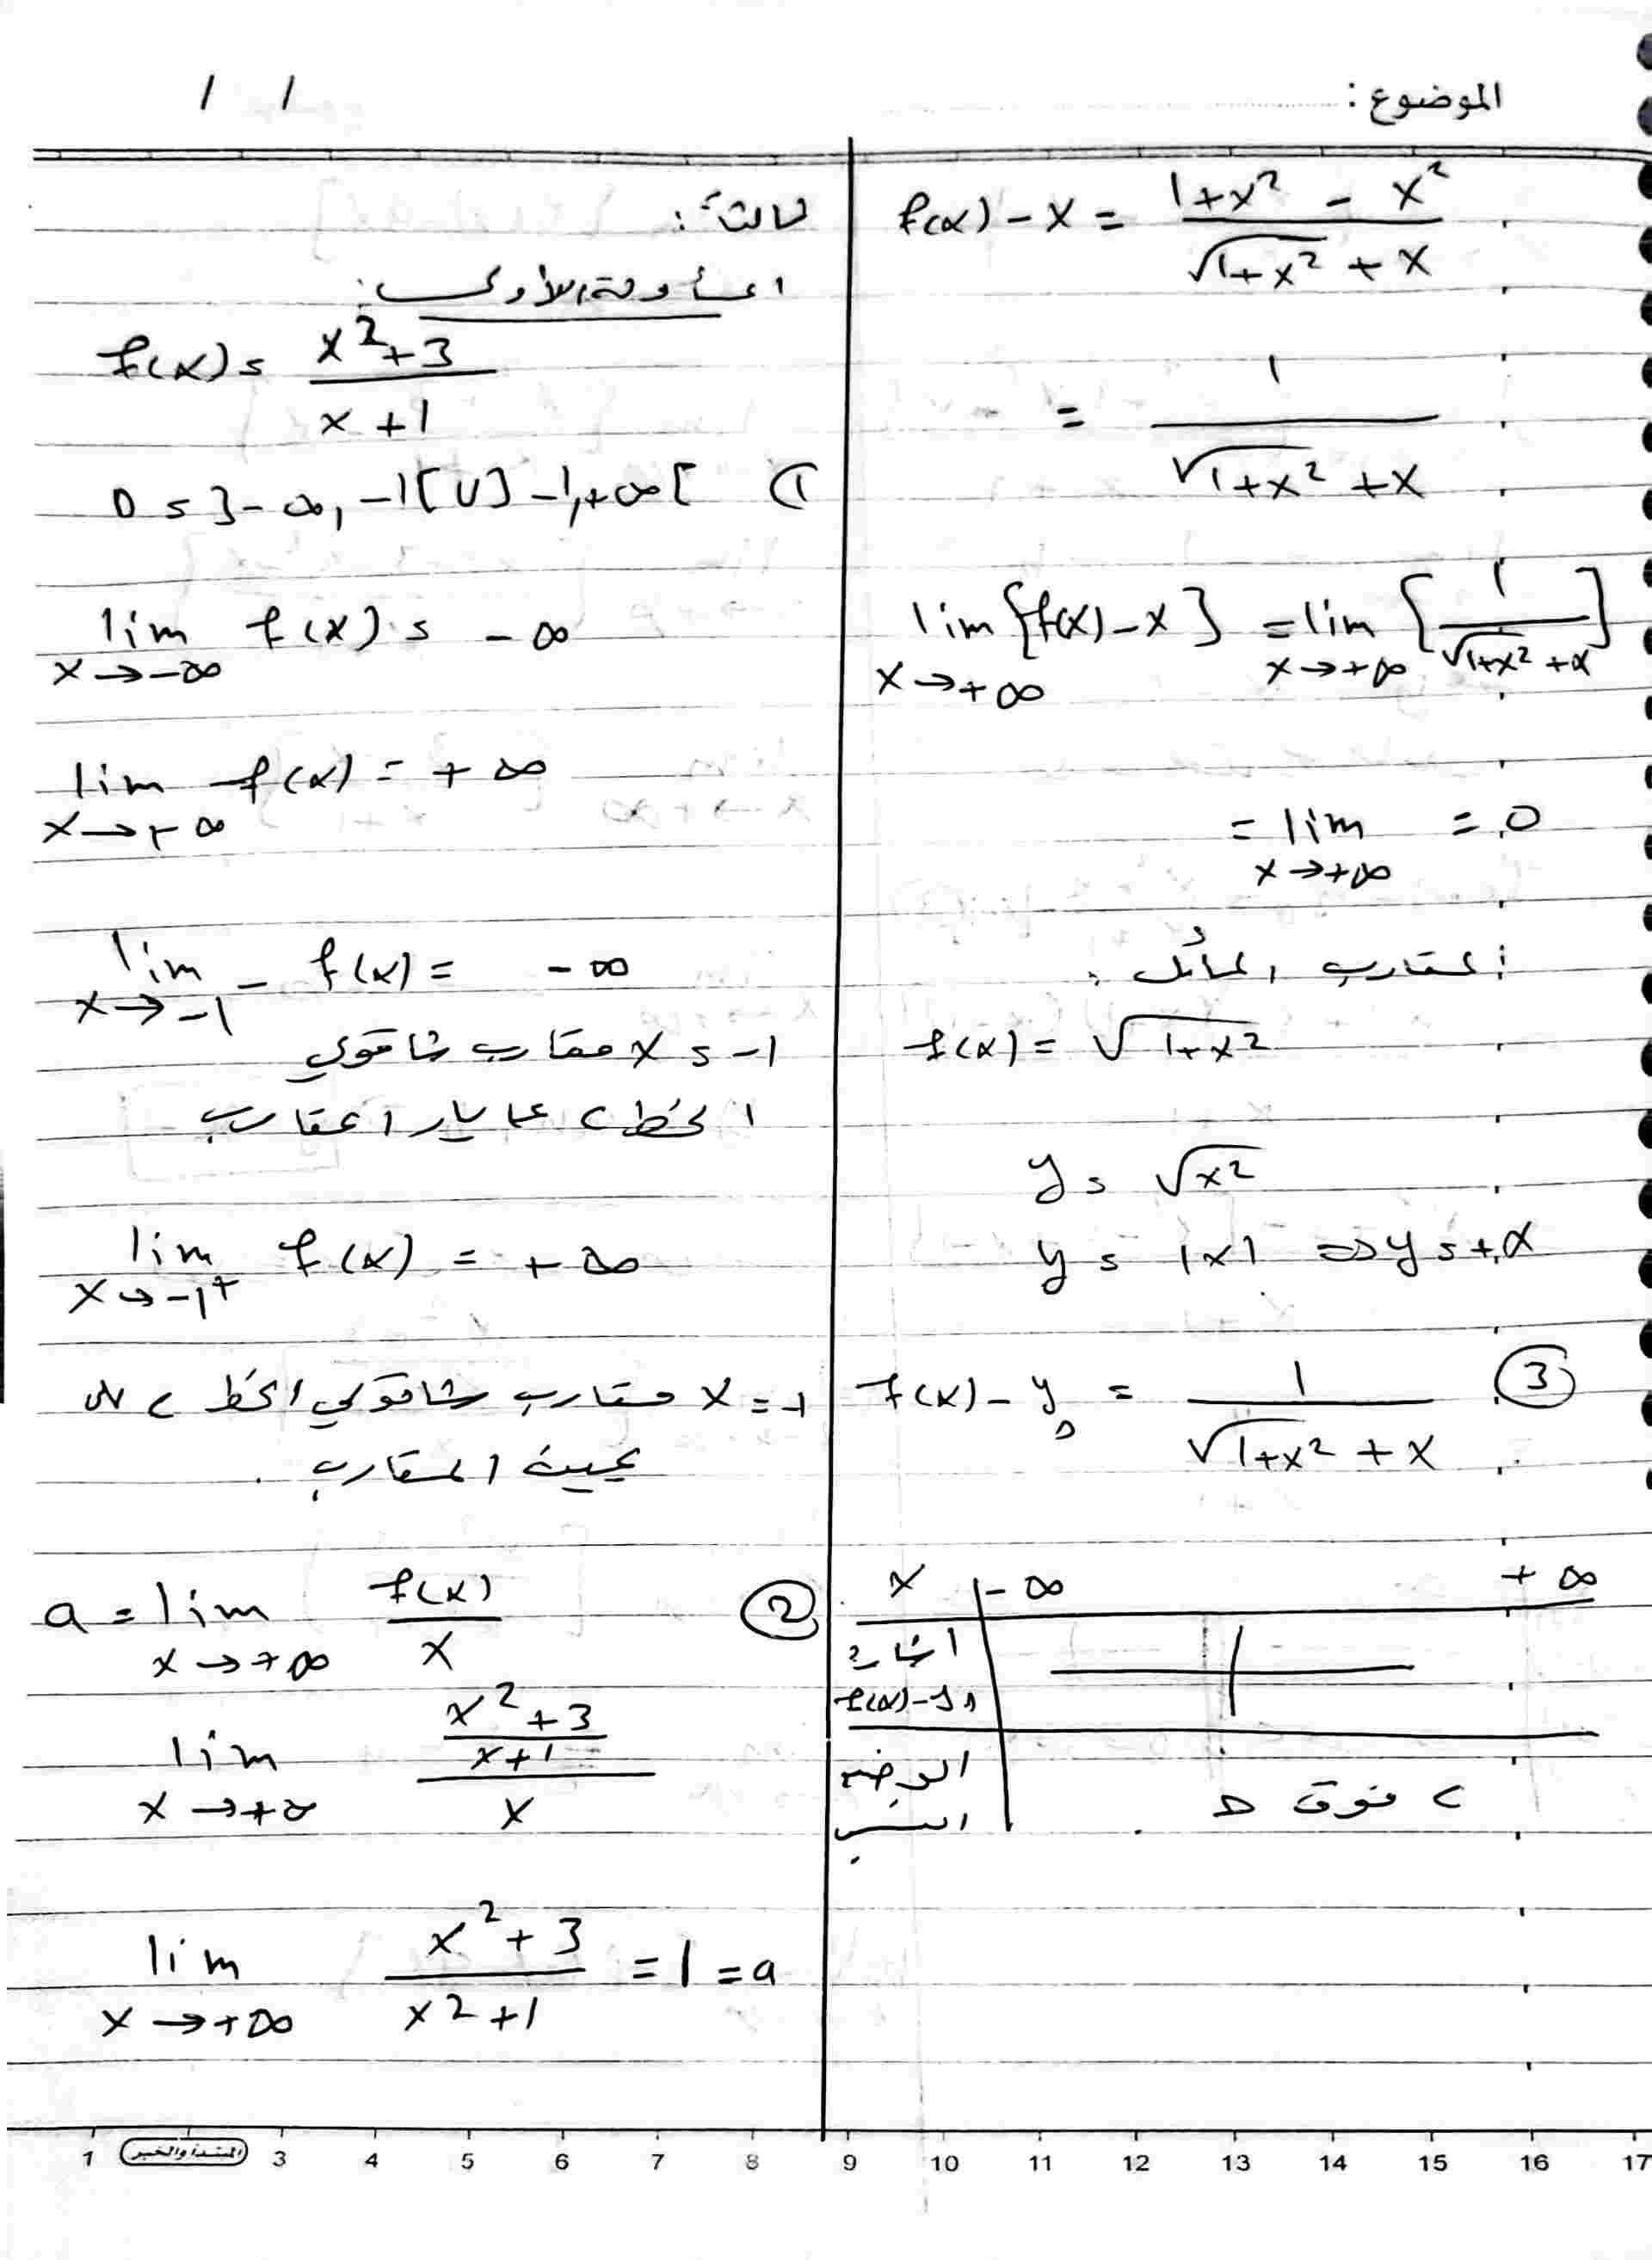 الموضوع:
/ /
f(x) - x = \frac{1+x² - x²}{\sqrt{1+x²} + x}
= \frac{1}{\sqrt{1+x²} + x}
lim_{x→+∞} {f(x) - x} = lim_{x→+∞} [\frac{1}{\sqrt{1+x²} + x}]
= lim_{x→+∞} = 0
المقارب المائل:
f(x) = \sqrt{1+x²}
y = \sqrt{x²}
y = |x| ⇒ y = +x
③ f(x) - y_Δ = \frac{1}{\sqrt{1+x²} + x}
x | -∞ +∞
اشارة f(x) - y_Δ
الوضع النسبي | C فوق Δ
ثالثاً:
المسألة الأولى:
f(x) = \frac{x² + 3}{x + 1}
1) D = ]-∞, -1[ ∪ ]-1, +∞[
lim_{x→-∞} f(x) = -∞
lim_{x→+∞} f(x) = +∞
lim_{x→-1^-} f(x) = -∞
x = -1 مقارب شاقولي
الخط C على يسار المقارب
lim_{x→-1^+} f(x) = +∞
x = -1 مقارب شاقولي الخط C على
يمين المقارب.
② a = lim_{x→+∞} \frac{f(x)}{x}
lim_{x→+∞} \frac{\frac{x²+3}{x+1}}{x}
lim_{x→+∞} \frac{x²+3}{x²+1} = 1 = a
1 المبتدأ والخبر 3 4 5 6 7 8 9 10 11 12 13 14 15 16 17